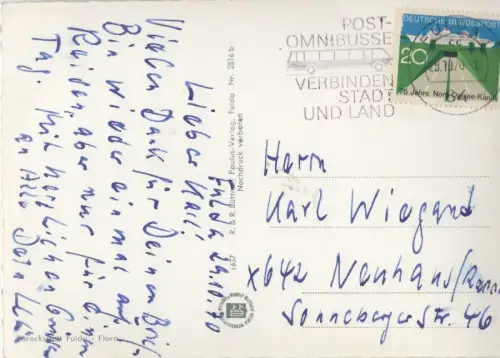 POST-
OMNIBUSSE
VERBINDEN
STADT
UND LAND
DEUTSCHE BUNDESPOST
20
75 Jahre Nord-Ostsee-Kanal
Fulda 24.10.70
Lieber Karl!
Vielen Dank für Deinen Brief.
Bin wieder einmal auf
Reisen, aber nur für einen
Tag. Mit herzlichen
an Alle Dein
Herrn
Karl Wiegand
x642 Neuhaus/
Sonneberger Str
R. & R. Büttner, Paulus-Verlag, Fulda Nr. 2816 b
Nachdruck verboten
Barockstadt Fulda - Flora